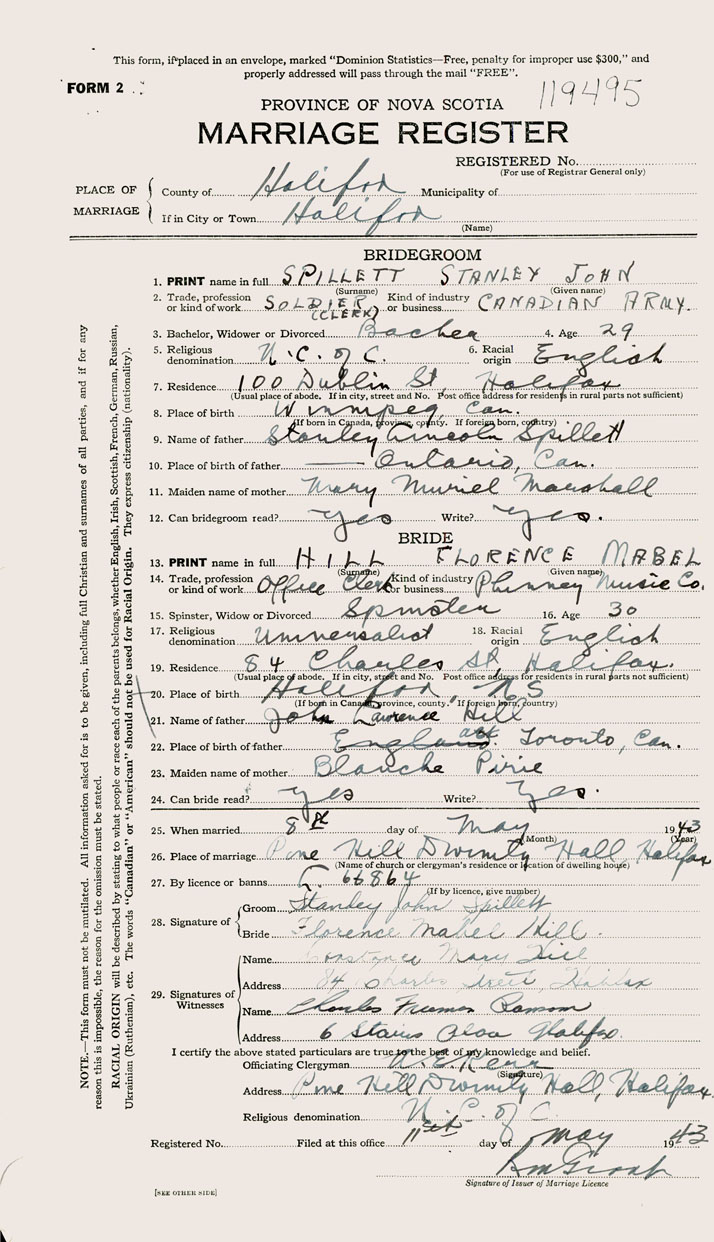 This form, if placed in an envelope, marked "Dominion Statistics—Free, penalty for improper use $300," and
properly addressed will pass through the mail "FREE".
FORM 2
119495
PROVINCE OF NOVA SCOTIA
MARRIAGE REGISTER
REGISTERED No.
(For use of Registrar General only)
PLACE OF MARRIAGE
County of Halifax Municipality of
If in City or Town Halifax
(Name)
BRIDEGROOM
1. PRINT name in full SPILLETT STANLEY JOHN
(Surname) (Given name)
2. Trade, profession or kind of work SOLDIER (CLERK) Kind of industry or business CANADIAN ARMY.
3. Bachelor, Widower or Divorced Bachelor 4. Age 29
5. Religious denomination U.C. of C. 6. Racial origin English
7. Residence 100 Dublin St, Halifax
(Usual place of abode. If in city, street and No. Post office address for residents in rural parts not sufficient)
8. Place of birth Winnipeg, Can.
(If born in Canada, province, county. If foreign born, country)
9. Name of father Stanley Lincoln Spillett
10. Place of birth of father Ontario, Can.
11. Maiden name of mother Mary Muriel Marshall
12. Can bridegroom read? yes Write? yes.
BRIDE
13. PRINT name in full HILL FLORENCE MABEL
(Surname) Given name)
14. Trade, profession or kind of work Office Clerk Kind of industry or business Phinney Music Co.
15. Spinster, Widow or Divorced Spinster 16. Age 30
17. Religious denomination Universalist 18. Racial origin English
19. Residence 84 Charles St, Halifax.
(Usual place of abode. If in city, street and No. Post office address for residents in rural parts not sufficient)
20. Place of birth Halifax, NS
(If born in Canada, province, county. If foreign born, country)
21. Name of father John Lawrence Hill
22. Place of birth of father England. Toronto, Can.
23. Maiden name of mother Blanche Pirie
24. Can bride read? yes Write? yes.
25. When married 8th day of May 1943
(Month) (Year)
26. Place of marriage Pine Hill Divinity Hall, Halifax
(Name of church or clergyman's residence or location of dwelling house)
27. By licence or banns L. 66864
(If by licence, give number)
28. Signature of
Groom Stanley John Spillett
Bride Florence Mabel Hill.
29. Signatures of Witnesses
Name Constance Mary Hill
Address 84 Charles Street, Halifax
Name Charles Freeman Ransom
Address 6 Halifax.
I certify the above stated particulars are true to the best of my knowledge and belief.
Officiating Clergyman A. E. Kerr
(Signature)
Address Pine Hill Divinity Hall, Halifax.
Religious denomination U.C. of C.
Registered No. Filed at this office 11th day of May 1943
Signature of Issuer of Marriage Licence
[SEE OTHER SIDE]
NOTE.—This form must not be mutilated. All information asked for is to be given, including full Christian and surnames of all parties, and if for any
reason this is impossible, the reason for the omission must be stated.
RACIAL ORIGIN will be described by stating to what people or race each of the parents belongs, whether English, Irish, Scottish, French, German, Russian,
Ukrainian (Ruthenian), etc. The words "Canadian" or "American" should not be used for Racial Origin. They express citizenship (nationality).